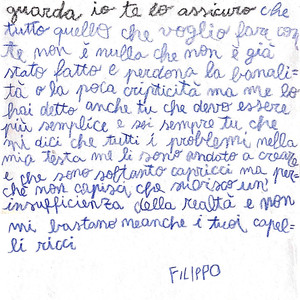 guarda io te lo assicuro che
tutto quello che voglio fare con
te non è nulla che non è già
stato fatto e perdona la banali-
tà o la poca cripticità ma me lo
hai detto anche tu che devo essere
più semplice e sei sempre tu che
mi dici che tutti i problemi nella
mia testa me li sono andato a creare
e che sono soltanto capricci ma per-
ché non capisci che subisco un'
insufficienza della realtà e non
mi bastano neanche i tuoi capel-
li ricci
FILIPPO